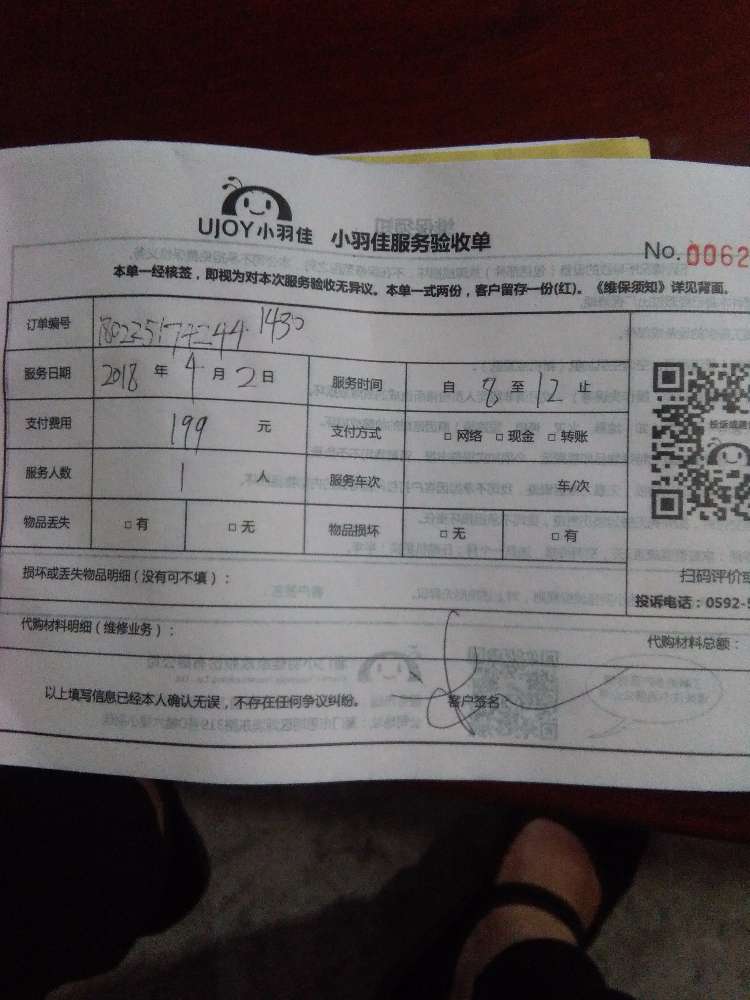 UJOY小羽佳 小羽佳服务验收单
No. 0062
本单一经核签，即视为对本次服务验收无异议。本单一式两份，客户留存一份(红)。《维保须知》详见背面。
订单编号
服务日期 2018 年 4 月 2 日 服务时间 自 8 至 12 止
支付费用 199 元 支付方式 □ 网络 □ 现金 □ 转账
服务人数 1 人 服务车次 车/次
物品丢失 □ 有 □ 无 物品损坏 □ 无 □ 有
损坏或丢失物品明细 (没有可不填)：
扫码评价
投诉电话：0592-
代购材料明细 (维修业务)：
代购材料总额：
以上填写信息已经本人确认无误，不存在任何争议纠纷。 客户签名：